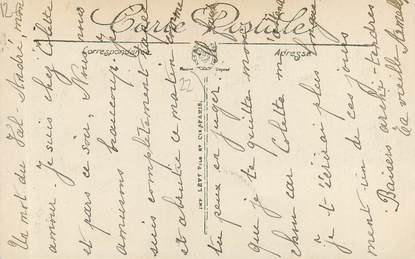 Carte Postale
Correspondance
Adresse
IMP. LEVY FILS ET CIE PARIS
22
Un mot du Val-André, mon
amour. Je suis chez Colette
et pars ce soir. Nous nous
amusons beaucoup. Je
suis complètement
et abrutie ce matin comme
tu peux en juger.
que je te quitte mon
chou car Colette
je t'écrirai plus
ment un de ces jours
Baisers tendres
ta vieille